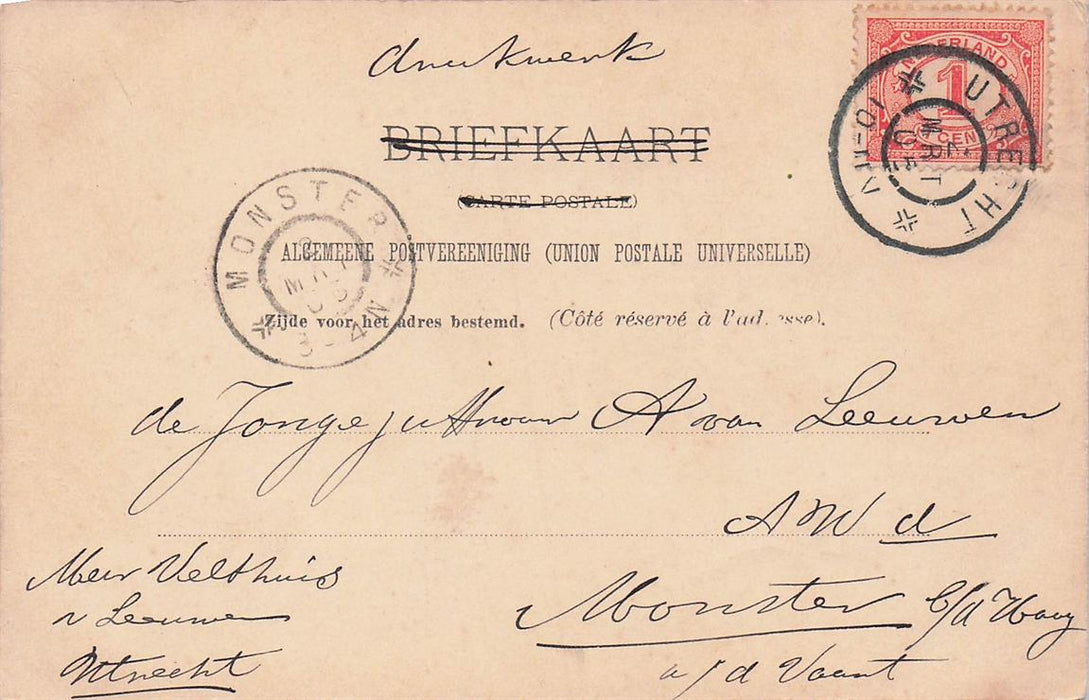 drukwerk
NEDERLAND
1
CENT
UTRECHT
MRT
05
10-11 V
BRIEFKAART
(CARTE POSTALE)
MONSTER
MRT
05
3-4 N
ALGEMEENE POSTVEREENIGING (UNION POSTALE UNIVERSELLE)
Zijde voor het adres bestemd. (Côté réservé à l'adresse).
de Jongejuffrouw A van Leeuwen
A W d
Monster b/d Haag
a/d Vaart
Velthuis
v Leeuwen
Utrecht